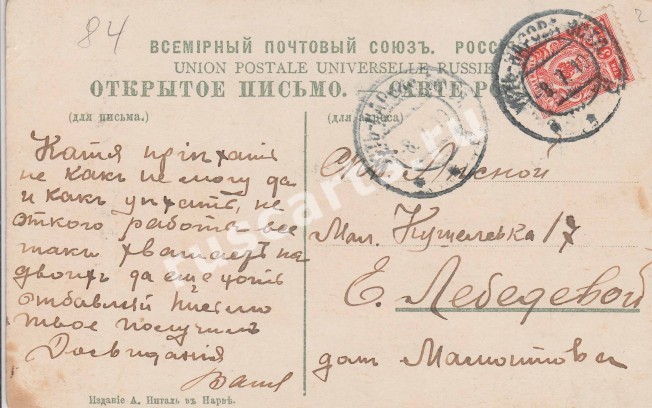 84
2
ВСЕМІРНЫЙ ПОЧТОВЫЙ СОЮЗЪ. РОССІ
UNION POSTALE UNIVERSELLE RUSSIE
ОТКРЫТОЕ ПИСЬМО. — CARTE PO
(для письма.)
(для адреса)
Катя пріѣхать
не какъ не могу да
и какъ уѣхать, не
работа все
таки хватаетъ на
двоихъ да еще хоть
отбавляй Письмо
твое получилъ
Досвиданія
Ваня
Ст. Лисной
Мал. Кушелевка 17
Е. Лебедевой
дом Мамонтова
Изданіе А. Ингалъ въ Нарвѣ.
russcarts.ru